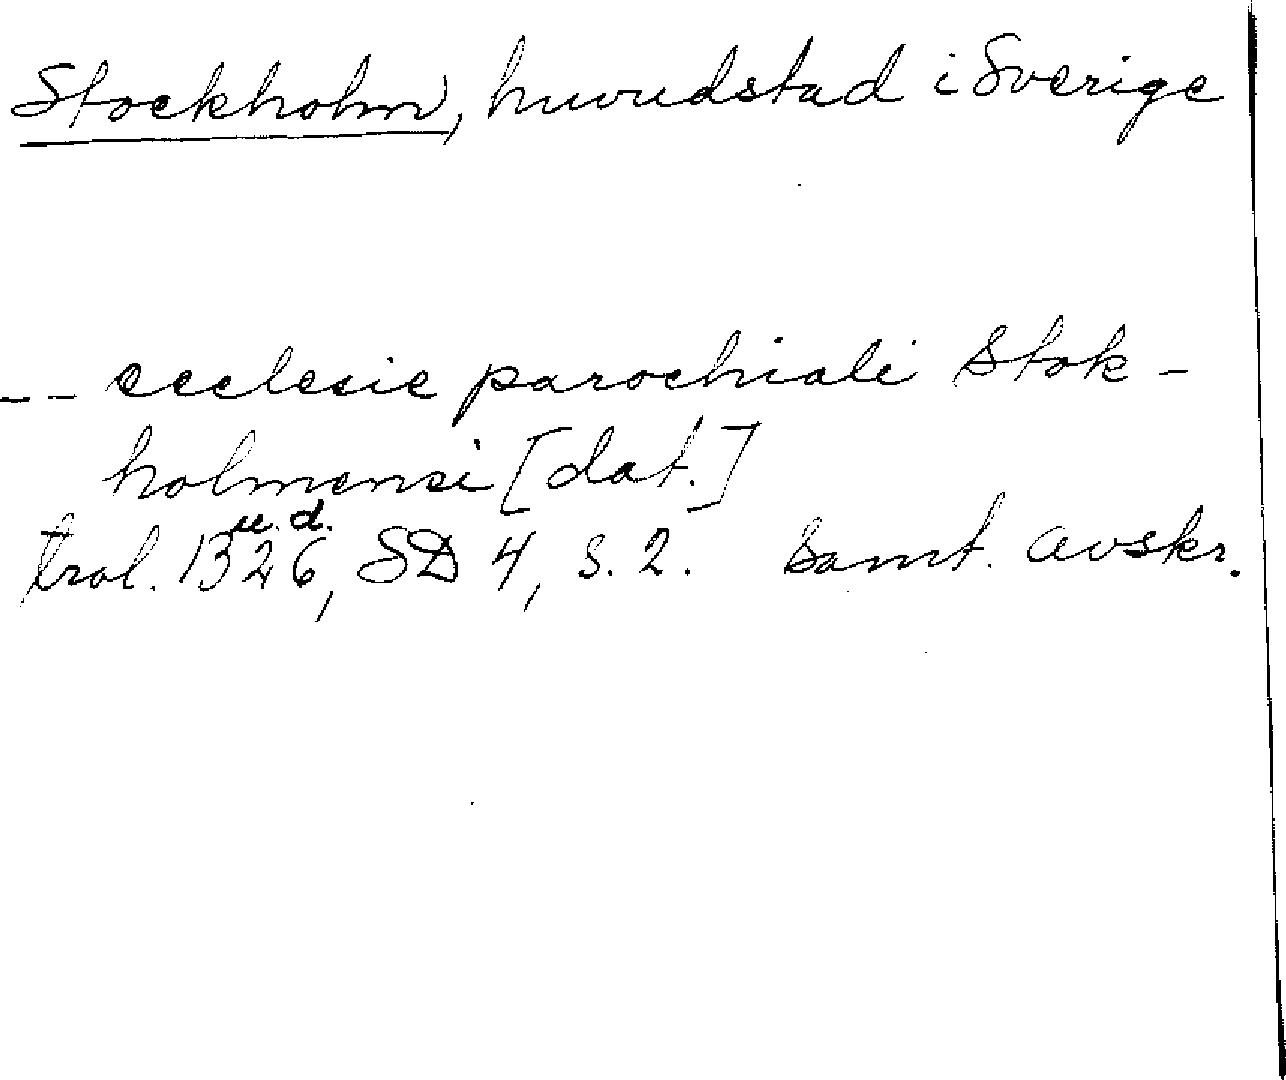 Stockholm, huvudstad i Sverige
-- ecclesie parochiali Stok-
holmensi [dat.]
u. d.
trol. 1326, SD 4, s. 2. Samt. avskr.